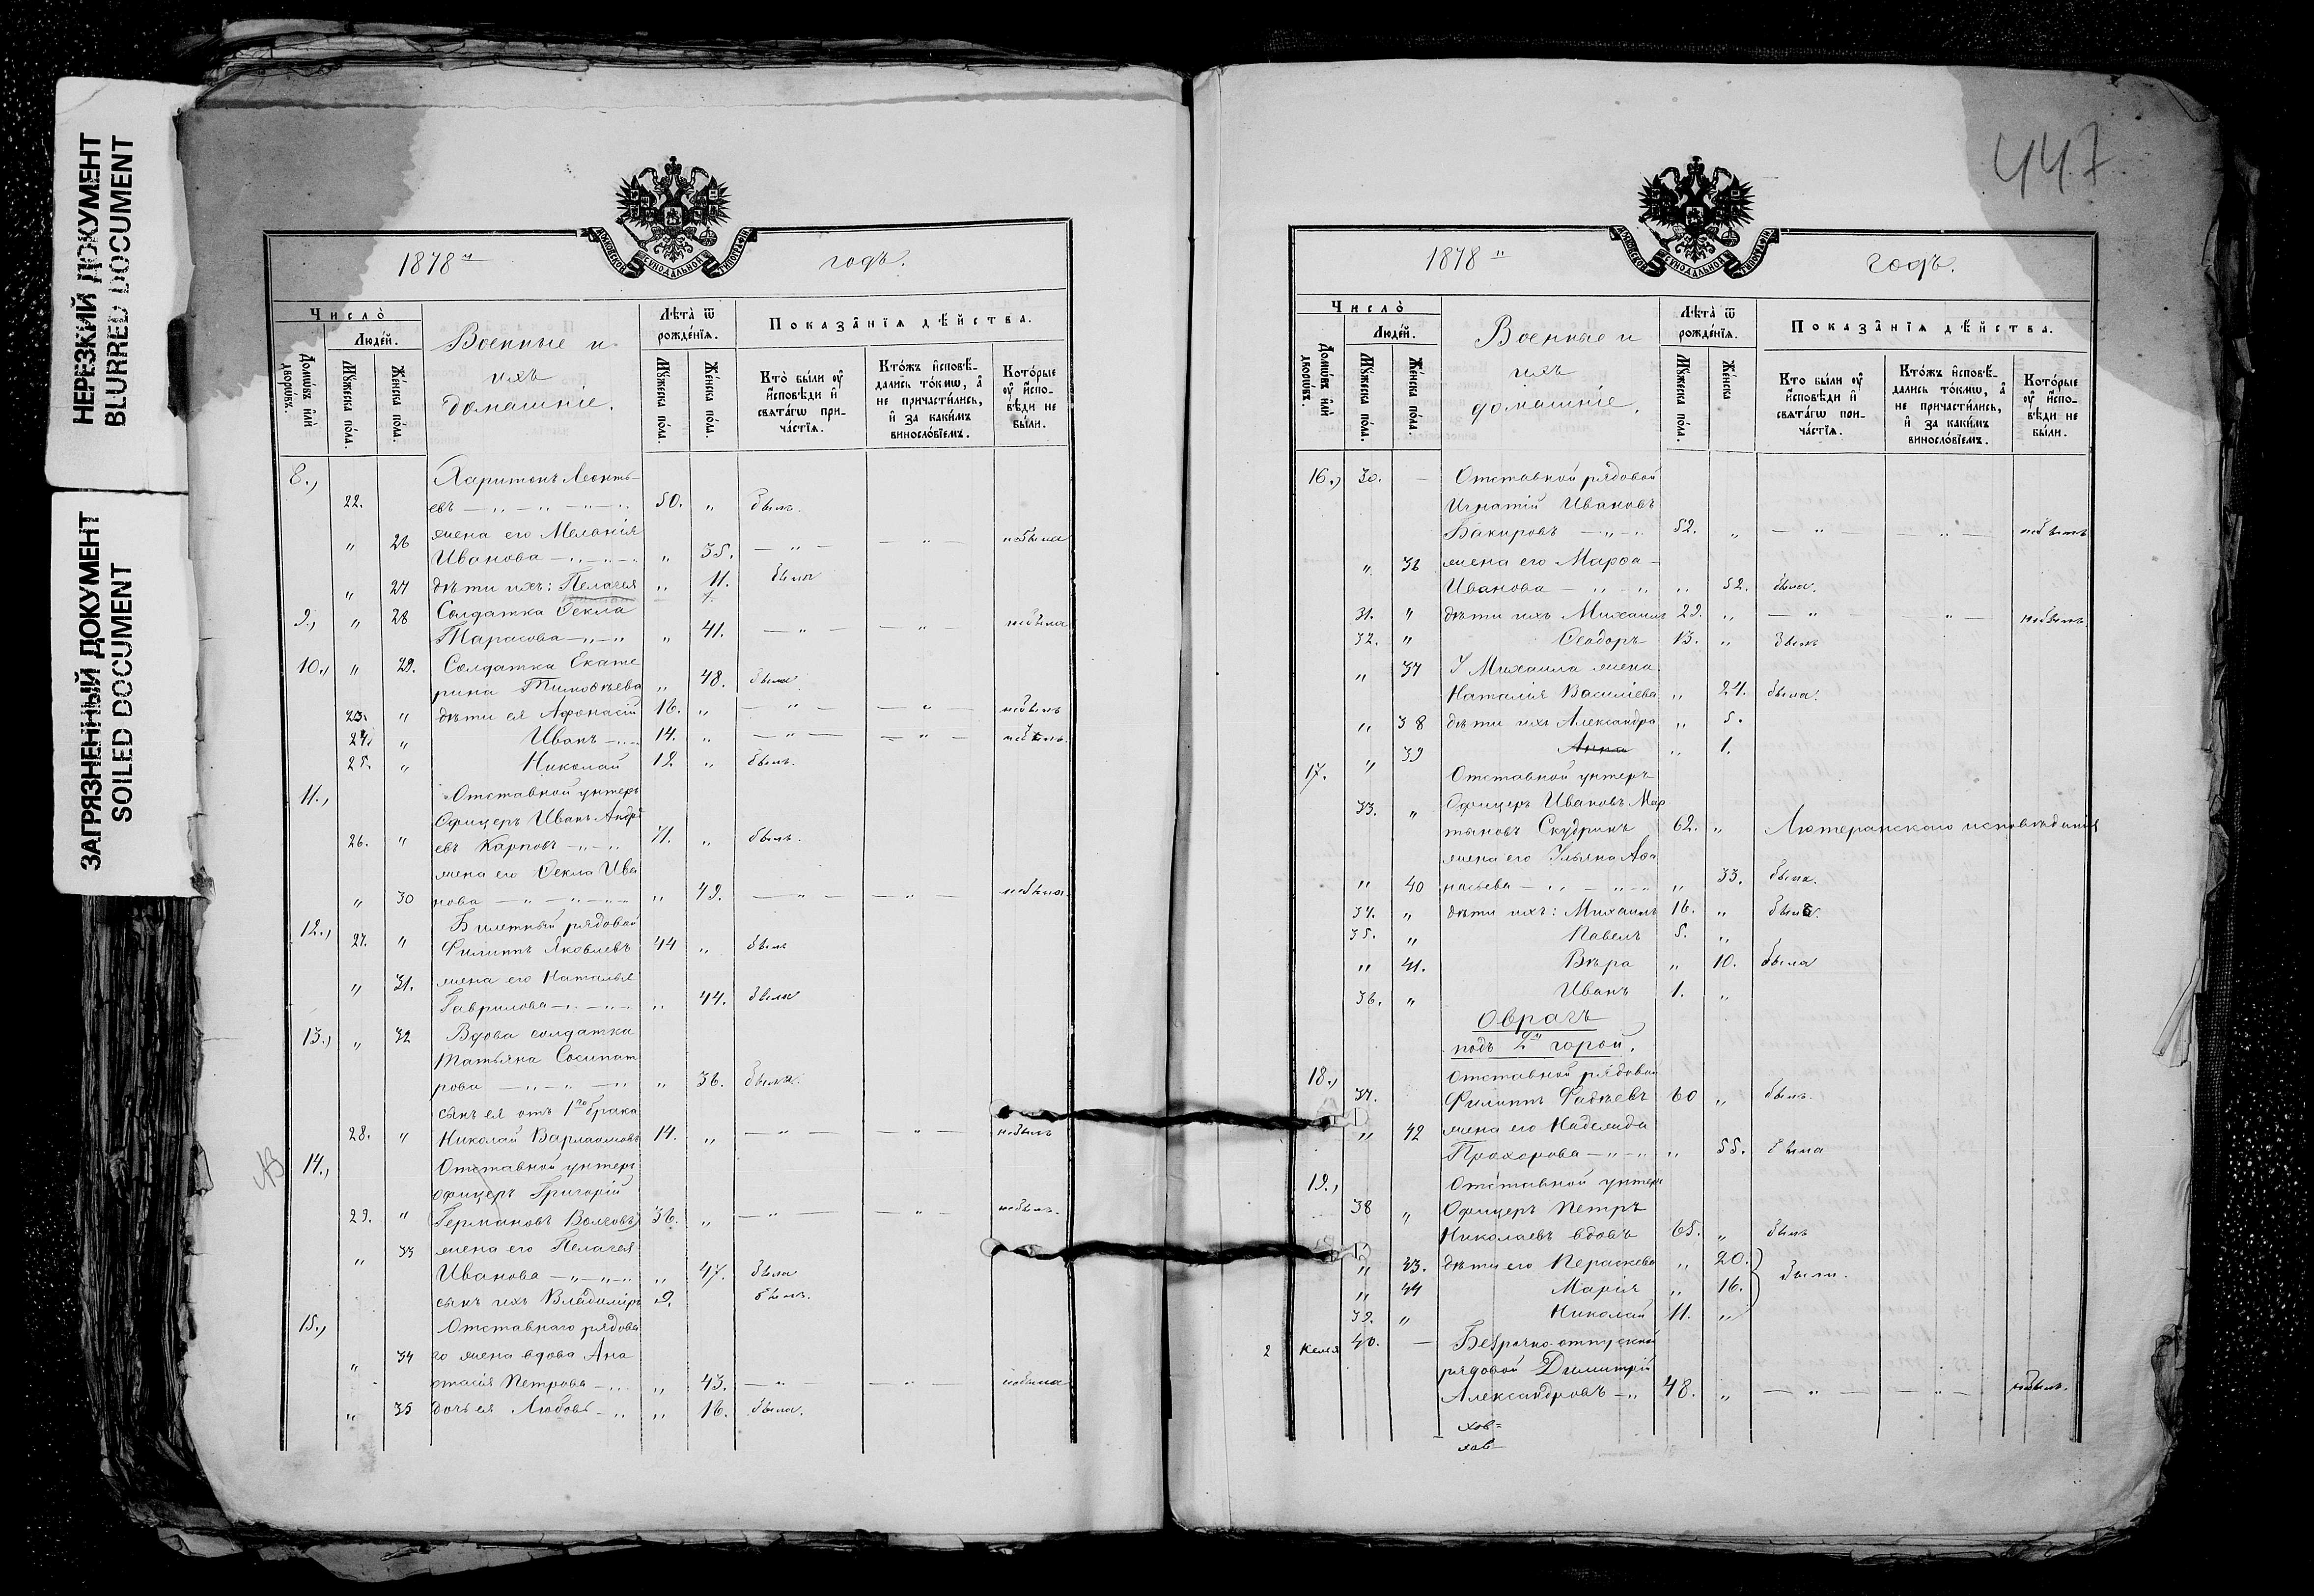 НЕРЕЗКИЙ ДОКУМЕНТ
BLURRED DOCUMENT
ЗАГРЯЗНЕННЫЙ ДОКУМЕНТ
SOILED DOCUMENT
МОСКОВСКОЙ СѴНОДАЛЬНОЙ ТИПОГРАФІИ
1878 годъ.
Число̀
Людей.
Домѡвъ и҆лѝ дворѡвъ.
Мꙋжеска пола.
Женска пола.
Военные и
ихъ
домашніе.
Лѣта̀ ѿ рожде́нїѧ.
Мꙋжеска пола.
Женска пола.
Показа̑нїѧ дѣ́йства.
Кто̀ бы́ли оу҆ и҆сповѣди и҆ свѧта́гѡ причастїѧ.
Кто́жъ и҆сповѣ́дались то́кмѡ, а҆ не причасти́лись, и҆ за каки́мъ винослові́емъ.
Кото́рые оу҆ и҆сповѣди не бы́ли.
8., Харитонъ Леонть-
22. евъ 50. " былъ.
" 26 жена его Меланія
Иванова " 35. — " — — " — небыла
" 27 дѣти ихъ: Пелагея " 11. была
9., " 28 Солдатка Ѳекла
Тарасова " 41. — " — — " — небыла
10., " 29. Солдатка Екате
рина Тимоѳѣева " 48. была
23. " дѣти ея Афонасій 16. " — " — — " — небылъ
24. " Иванъ 14. " — " — — " — небылъ.
25. " Николай 12. " былъ.
11., Отставной унтеръ
Офицеръ Иванъ Андре
26. " евъ Карповъ 71. " былъ.
жена его Ѳекла Ива
" 30 нова " 49. — " — — " — небыла.
12., Билетный рядовой
27. " Филиппъ Яковлевъ 44 " былъ
" 31. жена его Наталья
Гаврилова " 44. была
13., " 32 Вдова солдатка
Татьяна Сосипат
рова " 36. была.
сынъ ея отъ 1го брака
28. " Николай Варлаамовъ 14. " — " — — " — небылъ
14., Отставной унтеръ
офицеръ Григорій
29. " (Германовъ Волковъ) 36. " — " — — " — небылъ.
" 33 жена его Пелагея
Иванова " 47. была
сынъ ихъ Владиміръ 9. былъ.
15., Отставнаго рядова
" 34 го жена вдова Ана
стасія Петрова " 43. — " — — " — небыла
" 35 дочь ея Любовь " 16. была.
447
МОСКОВСКОЙ СѴНОДАЛЬНОЙ ТИПОГРАФІИ
1878 годъ.
Число̀
Людей.
Домѡвъ и҆лѝ дворѡвъ.
Мꙋжеска пола.
Женска пола.
Военные и
ихъ
домашніе.
Лѣта̀ ѿ рожде́нїѧ.
Мꙋжеска пола.
Женска
Показа̑нїѧ дѣ́йства.
Кто бы́ли оу҆ и҆сповѣди и҆ свѧта́гѡ причастїѧ.
Кто́жъ и҆сповѣ́дались то́кмѡ, а҆ не причасти́лись, и҆ за каки́мъ винослові́емъ.
Кото́рые оу҆ и҆сповѣди не бы́ли.
16., 30. — Отставной рядовой
Игнатій Ивановъ
Бакировъ 52. " — " — — " — небылъ
" 36 жена его Марѳа
Иванова " 52. была.
31. " дѣти ихъ Михаилъ 29. " — " — " — небылъ.
32. " Ѳеодоръ 13. " былъ
" 37 У Михаила жена
Наталія Василіева " 24. была.
" 38 дѣти ихъ Александра " 5.
" 39 Анна " 1.
17. Отставной унтеръ
33. " Офицеръ Ивановъ Мар
тыновъ Скудринъ 62. " Лютеранскаго исповѣданія
жена его Ульяна Аѳа
" 40 насьева " 33. была.
34. " дѣти ихъ: Михаилъ 16. " былъ.
35. " Павелъ 5. "
" 41. Вѣра " 10. была
36. " Иванъ 1. "
Оврагъ
подъ 2й горой.
18., Отставной рядовой
37. Филиппъ Фадѣевъ 60 " былъ.
" 42 жена его Надежда
Прохорова " 55. была
19., Отставной унтеръ
38 " Офицеръ Петръ
Николаевъ вдовъ 65. " былъ
" 43. дѣти его Пераскева " 20.
" 44 Марія " 16. были.
39. " Николай 11. "
2 келья 40. — Безрочно-отпускной
рядовой Димитрій
Александровъ 48. " — " — — " — небылъ.